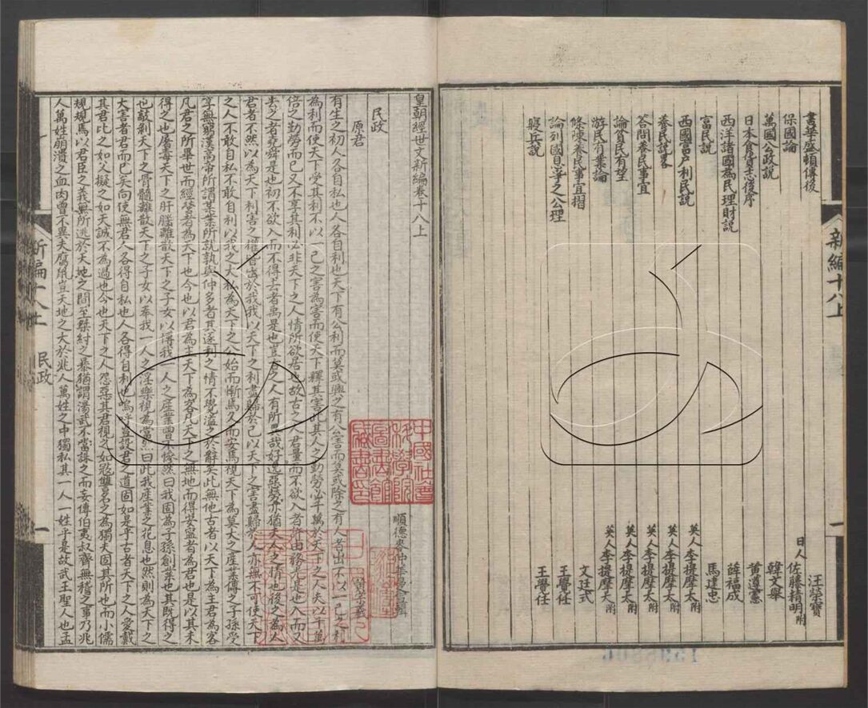 書華盛頓傳後 汪榮寶
保國論 日人佐藤精明附
萬國公政說 韓文舉
日本食貨志後序 黃遵憲
西洋諸國為民理財說 薛福成
富民說 馬建忠
西國富戶利民說 英人李提摩太附
養民說畧 英人李提摩太附
答問養民事宜 英人李提摩太附
論貧民有望 英人李提摩太附
游民有業論 英人李提摩太附
條陳養民事宜摺 文廷式
論列國息爭之公理 王覺任
寢兵說 王覺任
新編十八上
一
皇朝經世文新編卷十八上
順德麥仲華曼宣輯
民政
原君
有生之初人各自私也人各自利也天下有公利而莫或興之有公害而莫或除之有人者出不以一己之利
為利而使天下受其利不以一己之害為害而使天下釋其害此其人之勤勞必千萬於天下之人夫以千萬
倍之勤勞而己又不享其利必非天下之人情所欲居也故古之人君量而不欲入者許由務光是也入而又
去之者堯舜是也初不欲入而不得去者禹是也豈古之人有所異哉好逸惡勞亦猶夫人之情也後之為人
君者不然以為天下利害之權皆出於我我以天下之利盡歸於己以天下之害盡歸於人亦無不可使天下
之人不敢自私不敢自利以我之大私為天下之公始而慚焉久而安焉視天下為莫大之產業傳之子孫受
享無窮漢高帝所謂某業所就孰與仲多者其逐利之情不覺溢之於辭矣此無他古者以天下為主君為客
凡君之所畢世而經營者為天下也今也以君為主天下為客凡天下之無地而得安寧者為君也是以其未
得之也屠毒天下之肝腦離散天下之子女以博我一人之產業曾不慘然曰我固為子孫創業也其既得之
也敲剝天下之骨髓離散天下之子女以奉我一人之淫樂視為當然曰此我產業之花息也然則為天下之
大害者君而已矣向使無君人各得自私也人各得自利也嗚呼豈設君之道固如是乎古者天下之人愛戴
其君比之如父擬之如天誠不為過也今也天下之人怨惡其君視之如寇讎名之為獨夫固其所也而小儒
規規焉以君臣之義無所逃於天地之間至桀紂之暴猶謂湯武不當誅之而妄傳伯夷叔齊無稽之事乃兆
人萬姓崩潰之血肉曾不異夫腐鼠豈天地之大於兆人萬姓之中獨私其一人一姓乎是故武王聖人也孟
新編十八上
民政
一